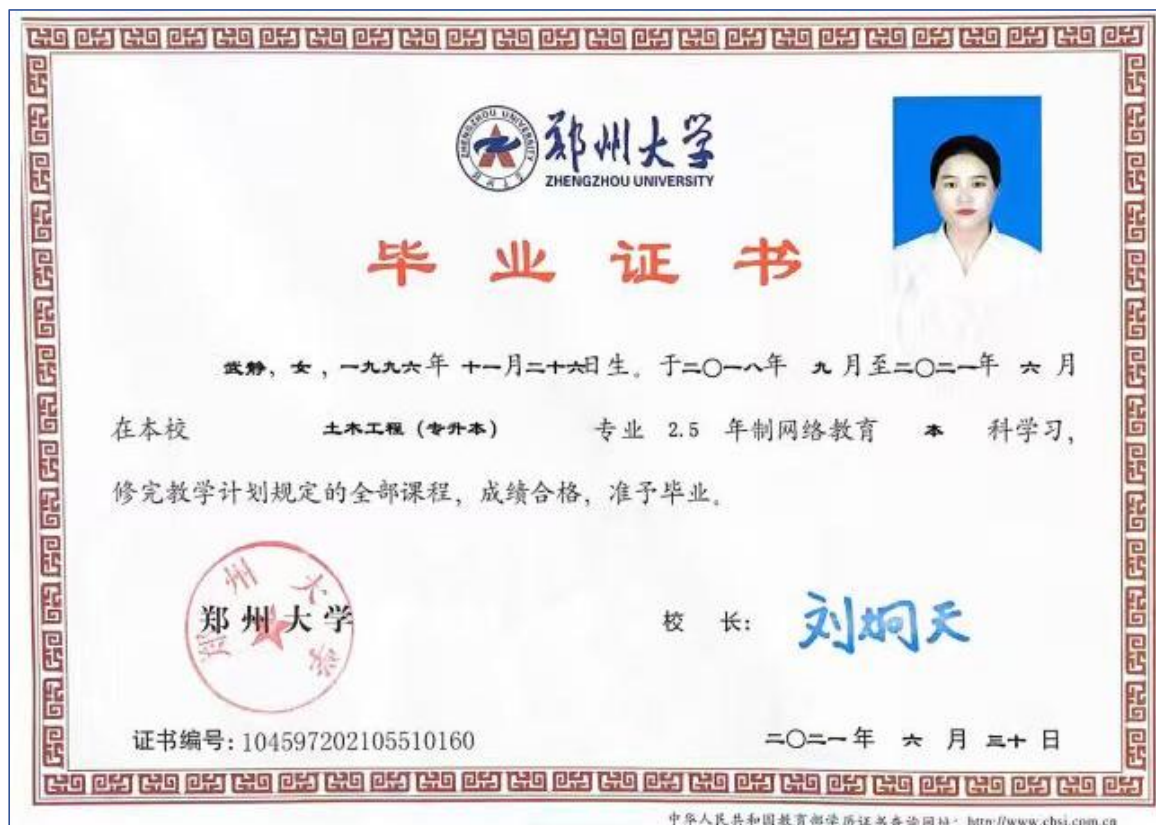 郑州大学
ZHENGZHOU UNIVERSITY
ZHENGZHOU UNIVERSITY
毕业证书
武静，女，一九九六年 十一月二十六日生。于二〇一八年 九 月至二〇二一年 六 月
在本校 土木工程（专升本） 专业 2.5 年制网络教育 本 科学习，
修完教学计划规定的全部课程，成绩合格，准予毕业。
郑州大学
郑州大学
校 长：刘炯天
证书编号：104597202105510160
二〇二一年 六 月 三十 日
中华人民共和国教育部学历证书查询网址：http://www.chsi.com.cn